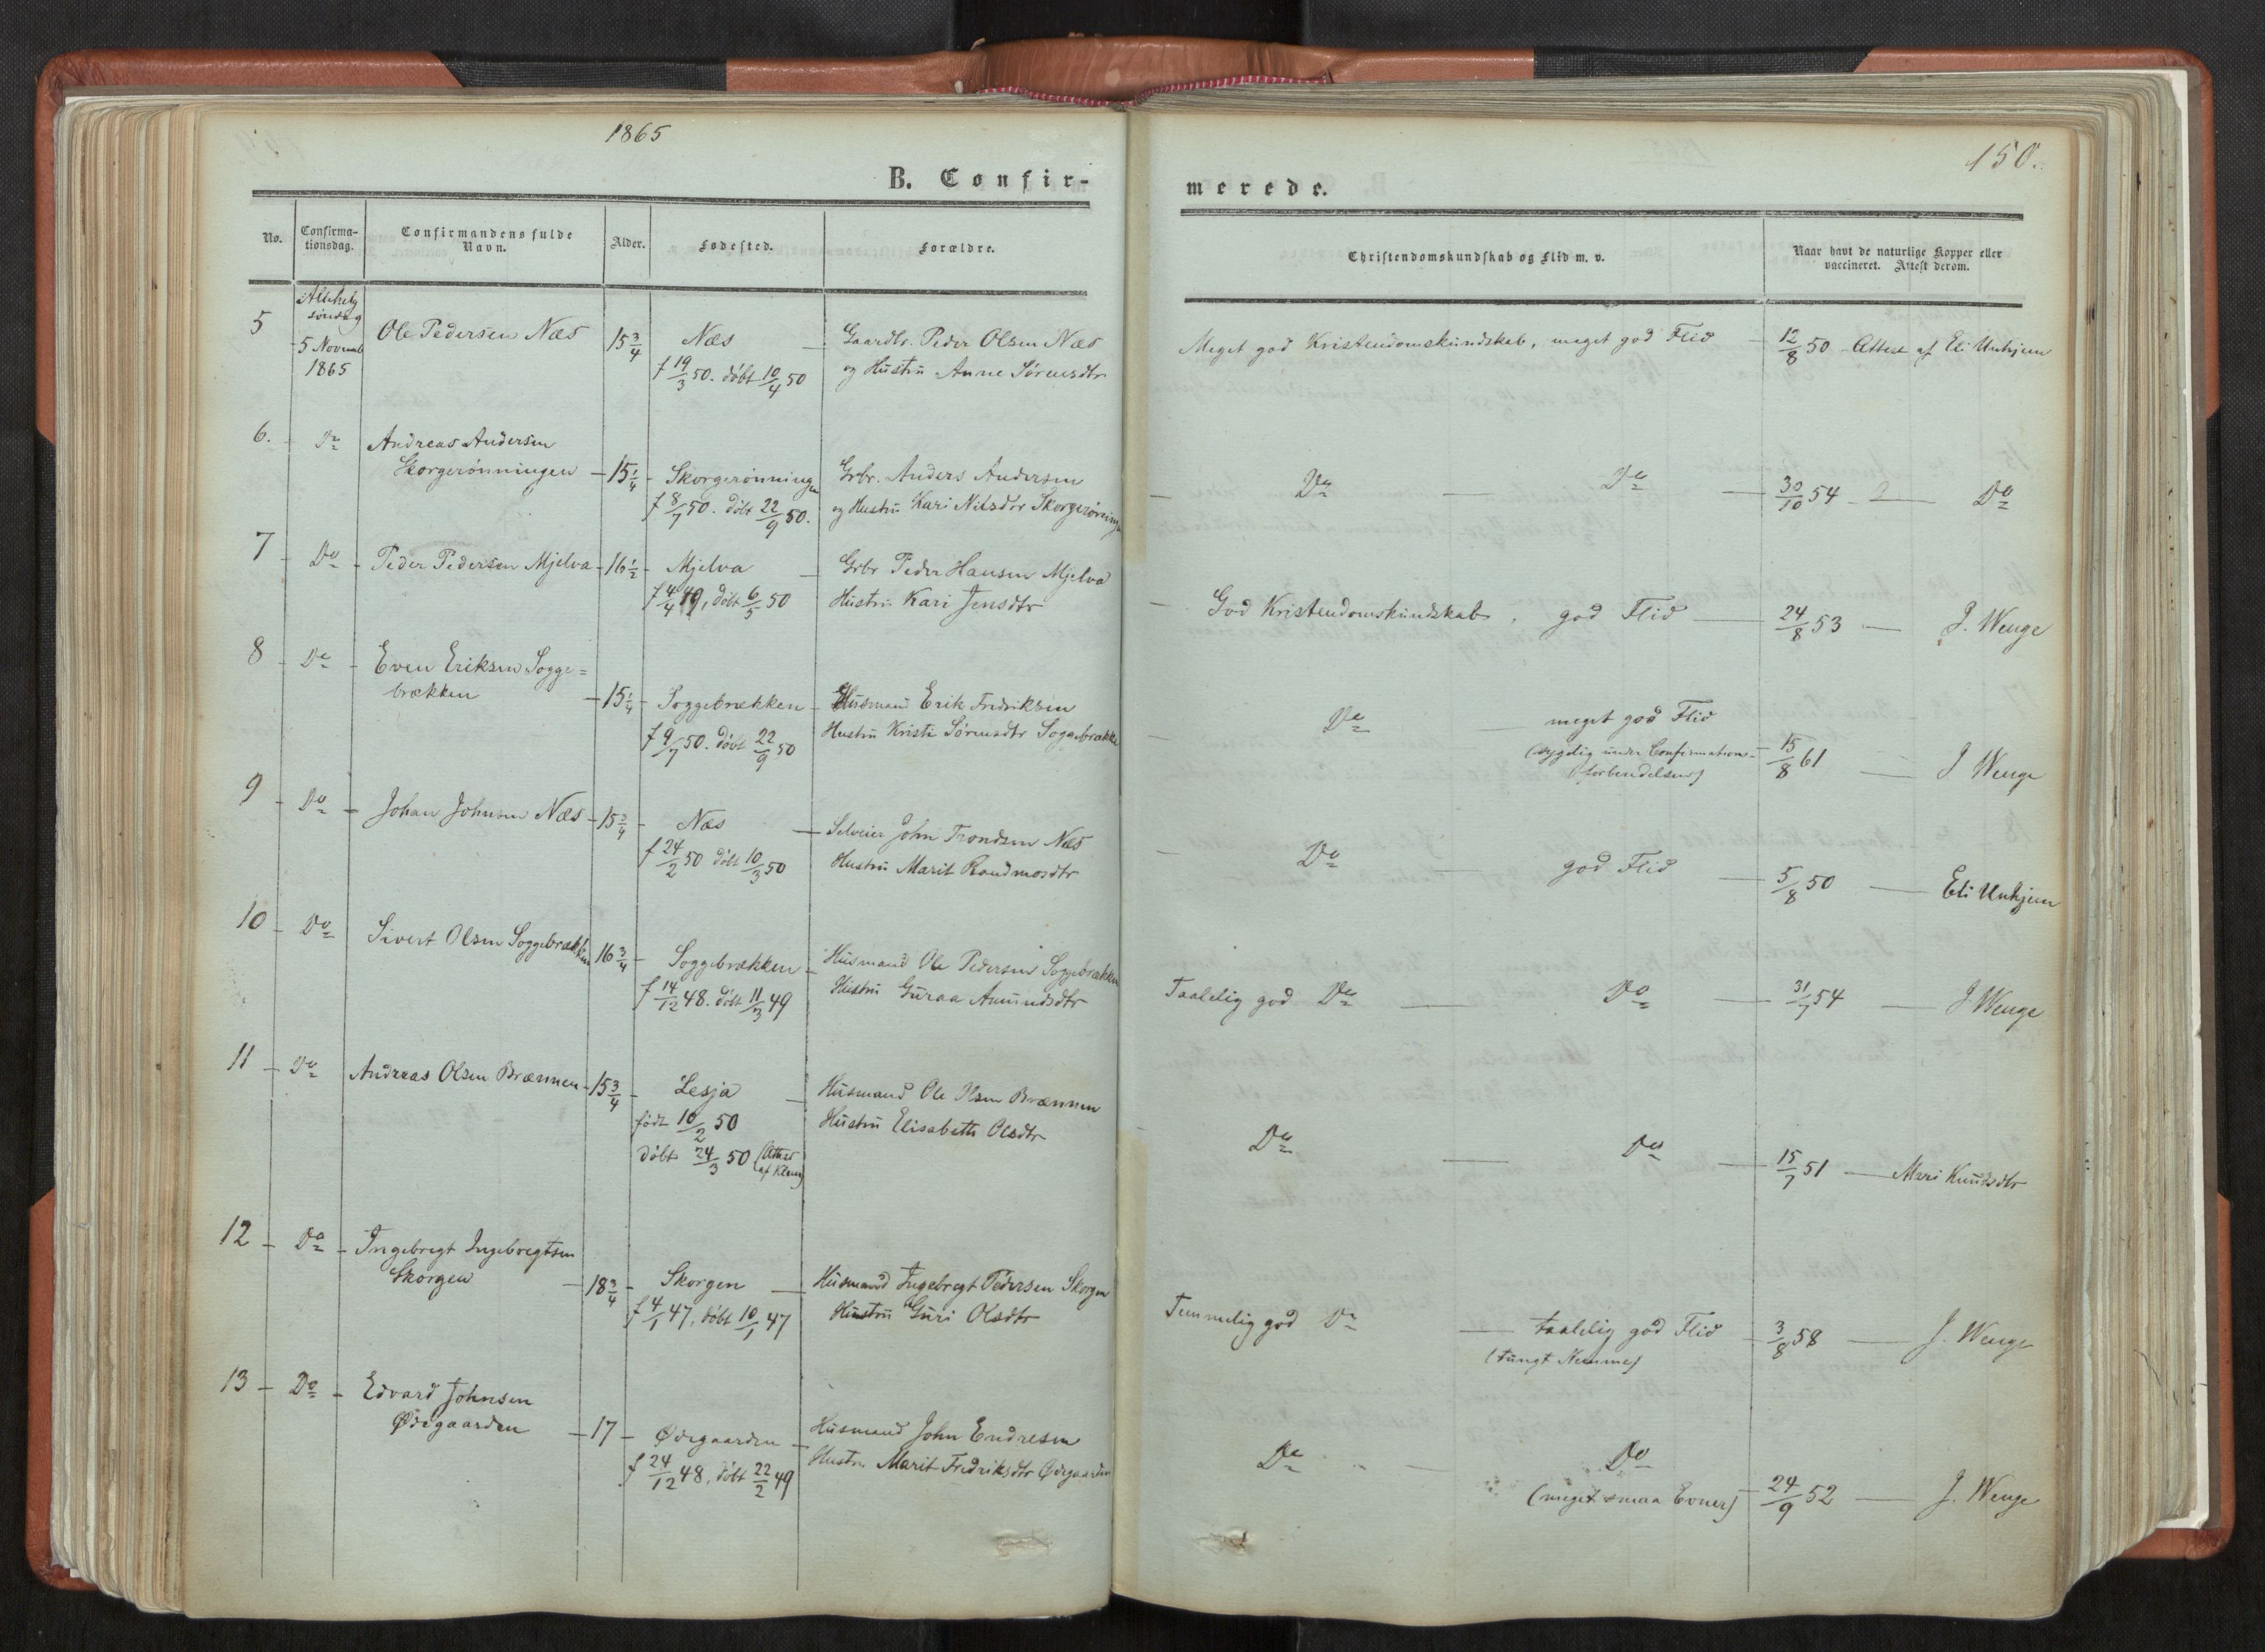 1865
150.
B. Confir-
merede.
No.
Confirma-
tionsdag.
Confirmandens fulde
Navn.
Alder.
Fødested.
Forældre.
Christendomskundskab og Flid m. v.
Naar havt de naturlige Kopper eller
vaccineret. Attest derom.
5
søndag
5 Novemb
1865
Ole Pedersen Næs
15 3/4
Næs —
f 19/3 50. døbt 10/4 50
Gaardbr. Peder Olsen Næs
og Hustru Anne Sørensdtr
Meget god Kristendomskundskab, meget god Flid — 12/8 50 - Attest af Eli Unhjem
6. - Do
Andreas Andersen
Skorgerønningen — 15 1/4 -
Skorgerønningen
f 8/7 50. døbt 22/9 50.
Grbr. Anders Andersen
og Hustru Kari Nilsdtr Skorgerønning
— Do — Do — 30/10 54 — Do
7 - Do - Peder Pedersen Mjelva - 16 1/2 - Mjelva —
f 4/4 49, døbt 6/5 50
Grbr Peder Hansen Mjelva
Hustru Kari Jensdtr
— God Kristendomskundskab, god Flid — 24/8 53 — J. Wenge
8 - Do - Even Eriksen Sogge=
brækken — 15 1/4 -
Soggebrækken -
f 9/7 50. døbt 22/9 50
Husmand Erik Fredriksen
Hustru Kristi Sørensdtr Soggebrække
— Do — meget god Flid
(sygelig under Confirmations-
forberedelsen) 15/8 61 — J Wenge
9 - Do - Johan Johnsen Næs - 15 3/4 - Næs —
f 24/2 50 døbt 10/3 50
Selveier John Trondsen Næs
Hustru Marit Raudmosdtr
— Do — god Flid — 5/8 50 — Eli Unhjem
10 - Do
Sivert Olsen Soggebrækken 16 3/4 - Soggebrækken -
f 14/12 48. døbt 11/3 49
Husmand Ole Pedersen Soggebrækken
Hustru Guraa Amundsdtr
Taalelig god Do — Do — 31/7 54 — J Wenge
11 - Do
Andreas Olsen Brænnen - 15 3/4 - Lesja —
født 10/2 50
døbt 24/3 50 (Attest
Husmand Ole Olsen Brænnen
Hustru Elisabeth Olsdtr
Do — Do — 15/7 51 — Mari Knudsdtr
12 - Do - Ingebregt Ingebregtsen
Skorgen — 18 3/4 -
Skorgen —
f 4/1 47, døbt 10/1 47
Husmand Ingebregt Pedersen Skorgen
Hustru Guri Olsdtr
Temmelig god Do — taalelig god Flid
(tungt Nemme) — 3/8 58 — J. Wenge
13 - Do - Edvard Johnsen
Ødegaarden — 17 -
Ødegaarden -
f 24/12 48, døbt 22/2 49
Husmand John Endresen
Hustru Marit Fredriksdtr Ødegaarden
Do — Do
(meget smaa Evner) — 24/9 52 — J. Wenge